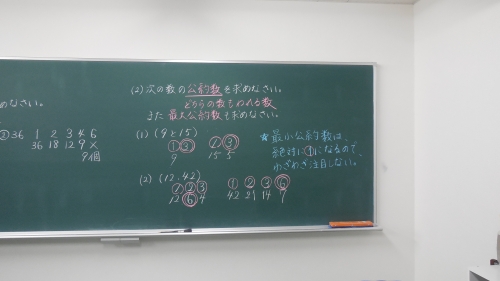 めなさい。
② 36 1 2 3 4 6
36 18 12 9 ×
9個
(2) 次の数の公約数を求めなさい。
どちらの数もわれる数
また 最大公約数も求めなさい。
(1) (9と15)
① ③ ① ③
9 15 5
(2) (12.42)
① ② ③ ① ② ③ ⑥
12 ⑥ 4 42 21 14 7
★最小公約数は、
絶対に①になるので、
わざわざ注目しない。